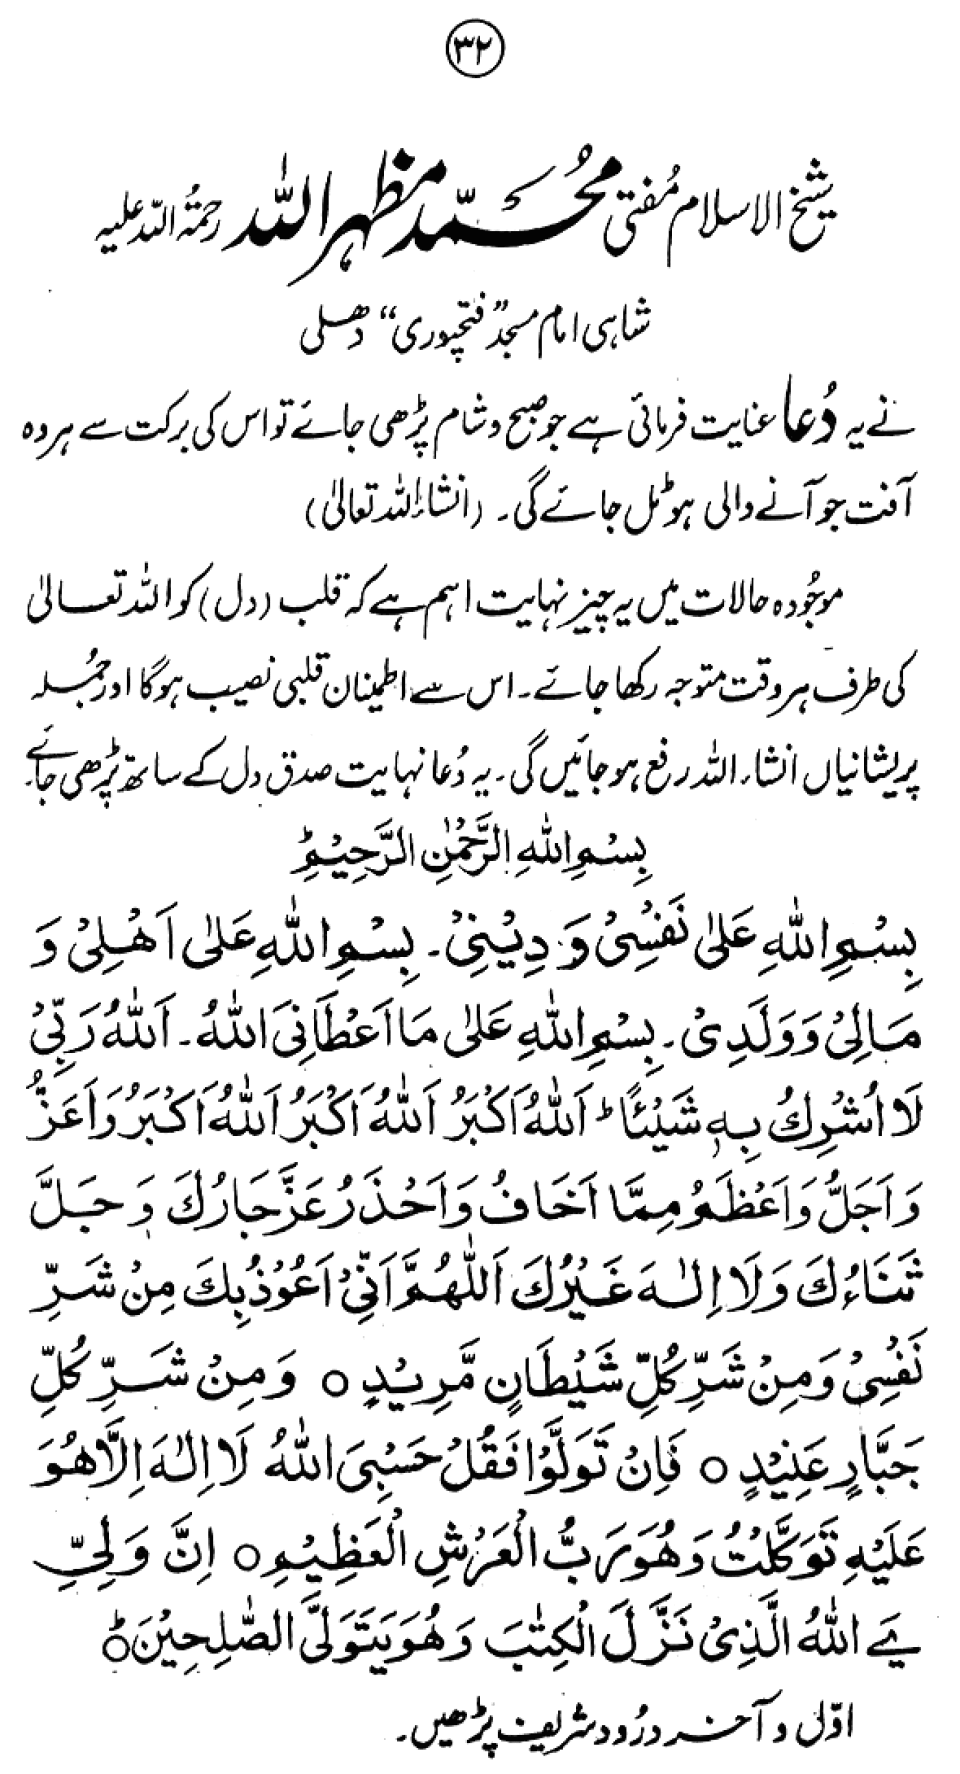 ۳۲
شیخ الاسلام مُفتی محُمّد مظہر اللہ رحمۃ اللہ علیہ
شاہی امام مسجد "فتحپوری" دھلی
نے یہ دُعا عنایت فرمائی ہے جو صبح و شام پڑھی جائے تو اس کی برکت سے ہر وہ
آفت جو آنے والی ہو ٹل جائے گی۔ (انشاءاللہ تعالیٰ)
موجُودہ حالات میں یہ چیز نہایت اہم ہے کہ قلب (دل) کو اللہ تعالیٰ
کی طرف ہر وقت متوجہ رکھا جائے۔ اس سے اطمینان قلبی نصیب ہوگا اور جُملہ
پریشانیاں انشاء اللہ رفع ہو جائیں گی۔ یہ دُعا نہایت صدق دل کے ساتھ پڑھی جائے۔
بِسْمِ اللهِ الرَّحْمٰنِ الرَّحِيْمِ ط
بِسْمِ اللهِ عَلىٰ نَفْسِىْ وَ دِيْنِىْ۔ بِسْمِ اللهِ عَلىٰ اَهْلِىْ وَ
مَالِىْ وَ وَلَدِىْ۔ بِسْمِ اللهِ عَلىٰ مَا اَعْطَانِىَ اللهُ۔ اَللهُ رَبِّىْ
لَا اُشْرِكُ بِهٖ شَيْئًا ط اَللهُ اَكْبَرُ اَللهُ اَكْبَرُ اَللهُ اَكْبَرُ وَ اَعَزُّ
وَ اَجَلُّ وَ اَعْظَمُ مِمَّا اَخَافُ وَ اَحْذَرُ عَزَّ جَارُكَ وَ جَلَّ
ثَنَاءُكَ وَ لَا اِلٰهَ غَيْرُكَ اَللّٰهُمَّ اِنِّىْ اَعُوْذُ بِكَ مِنْ شَرِّ
نَفْسِىْ وَ مِنْ شَرِّ كُلِّ شَيْطَانٍ مَّرِيْدٍ ○ وَ مِنْ شَرِّ كُلِّ
جَبَّارٍ عَنِيْدٍ ○ فَاِنْ تَوَلَّوْا فَقُلْ حَسْبِىَ اللهُ لَا اِلٰهَ اِلَّا هُوَ
عَلَيْهِ تَوَكَّلْتُ وَ هُوَ رَبُّ الْعَرْشِ الْعَظِيْمِ ○ اِنَّ وَلِىِّ
يَ اللهُ الَّذِىْ نَزَّلَ الْكِتٰبَ وَ هُوَ يَتَوَلَّى الصّٰلِحِيْنَ ○ ط
اوّل و آخر درُود شریف پڑھیں۔